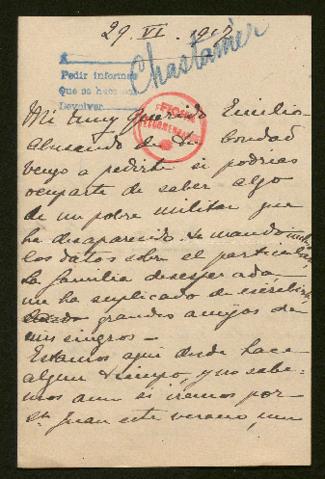 29. VI. 1917
Chastamer
A
Pedir informes
Que se haga
Devolver
FICHA
RECOMENDA
Mi muy querido Emilio-
Abusando de tu bondad
vengo a pedirte si podrias
ocuparte de saber algo
de un pobre militar que
ha desaparecido. Te mando
los datos sobre el particular,
la familia desesperada
me ha suplicado de escribirte
grandes amigos de
mis suegros-
Estamos aqui desde hace
algun tiempo, y no sabe-
mos aun si iremos por
Sn Juan este verano, un